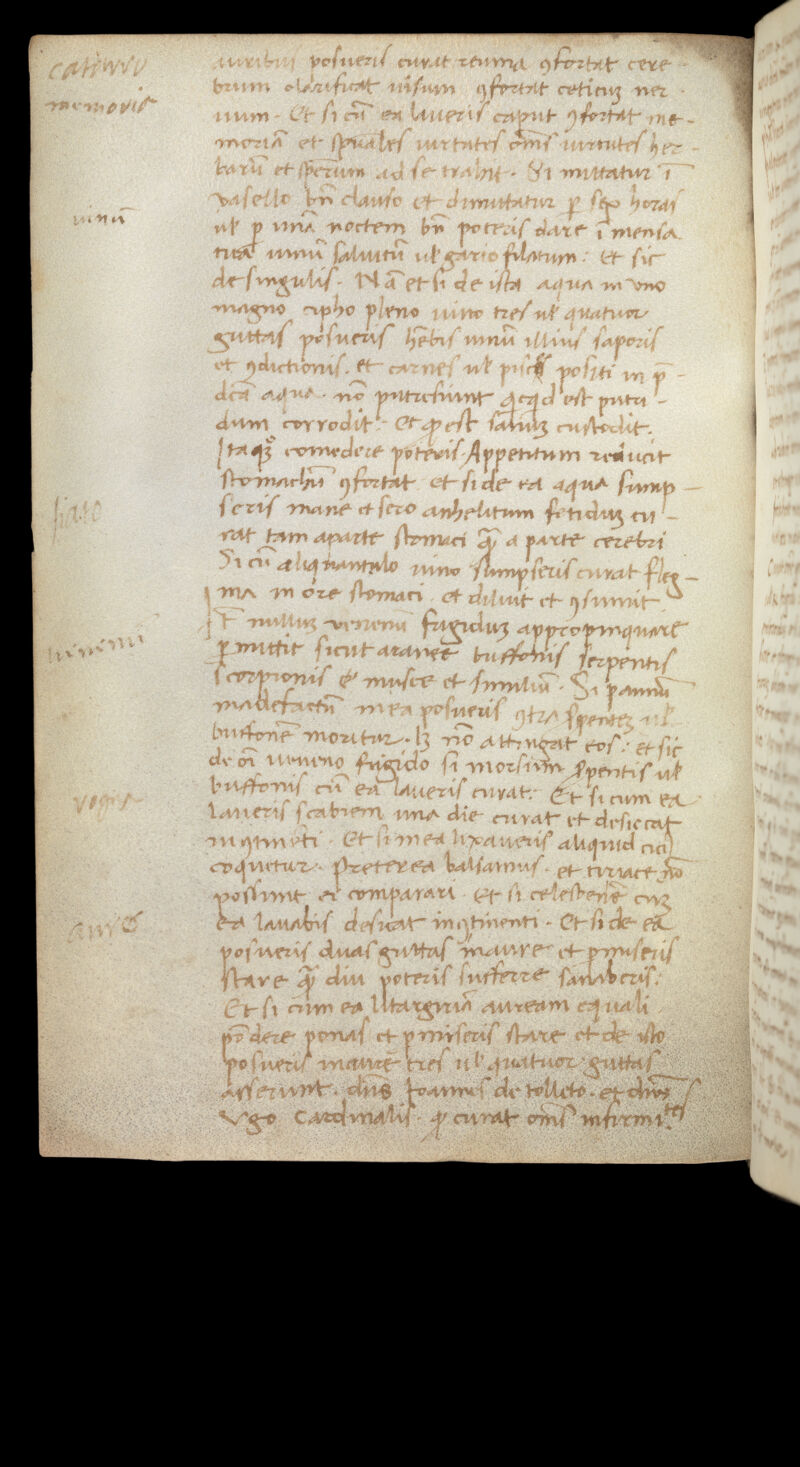 catarro
auribus posueris curat reuma ꝯfortat cere-
memorie
brum clarificat uisum ꝯfortat oeticuȝ ner-
uum. Et si cū ea laueris caput ꝯfortat me-
moriā et spūales uirtutes oms̄ uirtutes her-
barū et sperum ad se trahit. Si mittatur ī
vasello bn̄ clauso et dimittatur ꝑ sex horas
uinū
ul ꝑ unā noctem bn̄ poteris dare ī mensa
tua uinū saluiatū ul gariofilatum: et sic
de singulis. Nā et si de ista aqua in uno
magno cipho pleno uino tres ul quatuor
guttas posueris hēbis uinū illius saporis
et ꝯdictionis. et carnes ul pisces positi in p̄-
dc̄a aqua. nō putrefiunt quicquid est putri-
dum corrodit: et quod est sanuȝ custodit.
Itaqȝ comedere poteris. Appetitum reducit
stomachū ꝯfortat et si de ea aqua sump-
fiato
seris mane et sero anhelitum fetiduȝ cu-
rat tam a parte stomaci quam a parte cerebri
Si cū aliquantulo uino sumpseris curat fleg-
ma in ore stomaci. et diluit et ꝯsumit
Et nulluȝ uenenū frigiduȝ appropinquare
ueneni
ꝑmittit sicut aranee buffonis serpentis
scorpionis et musce et similiū. Si pannū
madefactū in ea posueris ꝯtra spenteȝ ul
buffonē moritur. lȝ nō attingat eos: et sic
de oī ueneno frigido si morsum spentis ul
buffonis cū ea laueris curat. Et si cum ea
rogna
laueris scabiem una die curat et desiccat
in ꝯtinēti. Et si in ea lixaueris aliquid cito
coquetur. Preterea balsamus. et tiriace nō
possunt ei comparari. Et si celesbene cuȝ
aures
ea lauabis desicat in ꝯtinenti. Et si de ea
posueris duas guttas in aure et ꝑmiseris
stare quam diu poteris sufferre sanaberis:
Et si cum ea litargiriā auream equali
pōdere ponas et ꝑmiseris stare et de isto
posueris in aurē tres ul quatuor guttas
asserunt. dn̄s Ioannes de tolleto. et dn̄s
Vgo Cardinalis. quod curat oms̄ infirmi.tes